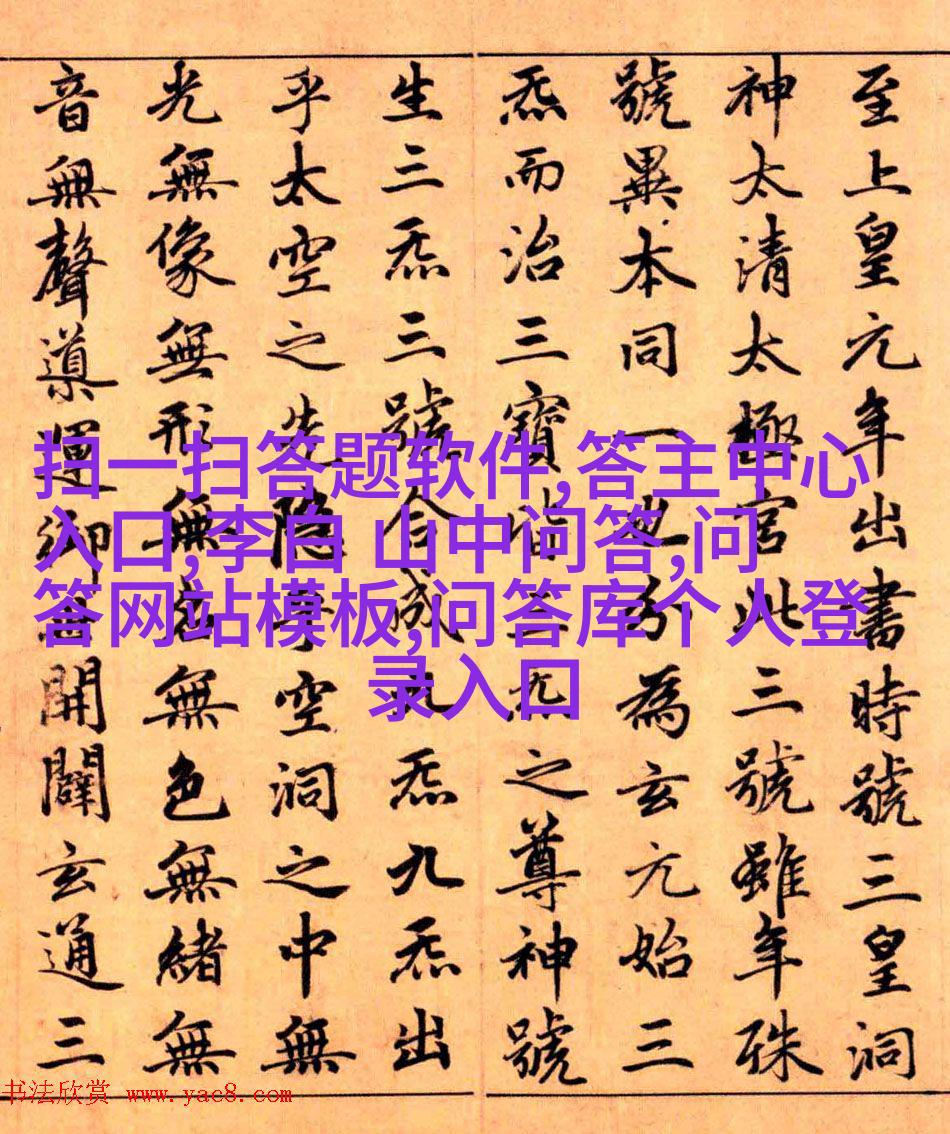 至上皇元年出書時號三皇洞
神太清太極宮此三號雖年殊
號異本同一也分為玄元始三
炁而治三寶皆三炁之尊神號
生三炁三號合成九炁九炁出
乎太空之先隐乎空洞之中無
光無像無形無名無色無緒無
音無聲導運御世開闢玄通三
扫一扫答题软件,答主中心
入口,李白 山中问答,问
答网站模板,问答库个人登
录入口
书法欣赏 www.yac8.com